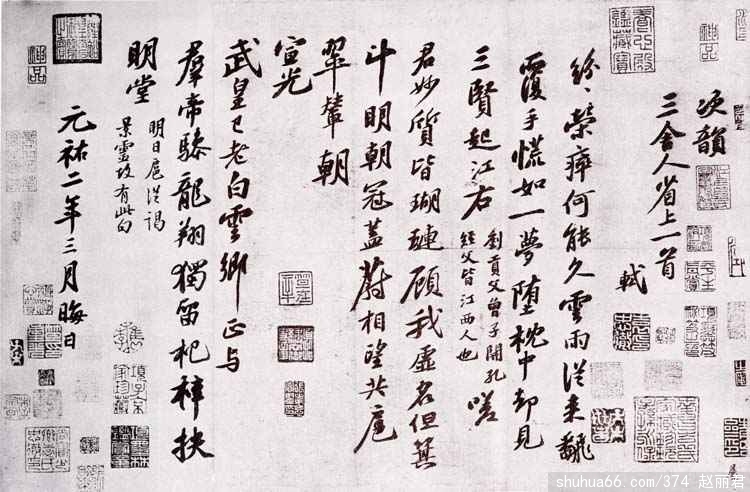 次韻
三舍人省上一首
軾
紛〻榮瘁何能久雲雨從来翻
覆手慌如一夢墮枕中却見
三賢起江右
劉貢父曾子開孔
經父皆江西人也
嗟
君妙質皆瑚璉顧我虛名但箕
斗明朝冠蓋蔚相望共扈
翠輦朝
宣光
武皇已老白雲鄉正与
羣帝驂龍翔獨留杞梓扶
明堂
明日扈從謁
景靈故有此句
元祐二年三月晦日
神品
shuhua66.com/374 赵丽君